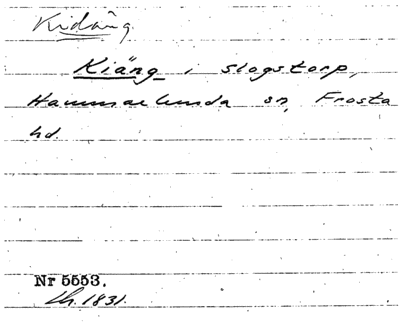 Kidäng.
Kiäng i Slogstorp,
Hammarlunda sn, Frosta
hd.
Nr 5553.
1831.